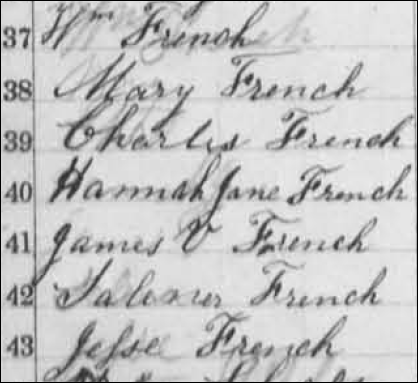 37 Wm French
38 Mary French
39 Charles French
40 Hannah Jane French
41 James V French
42 French
43 Jesse French